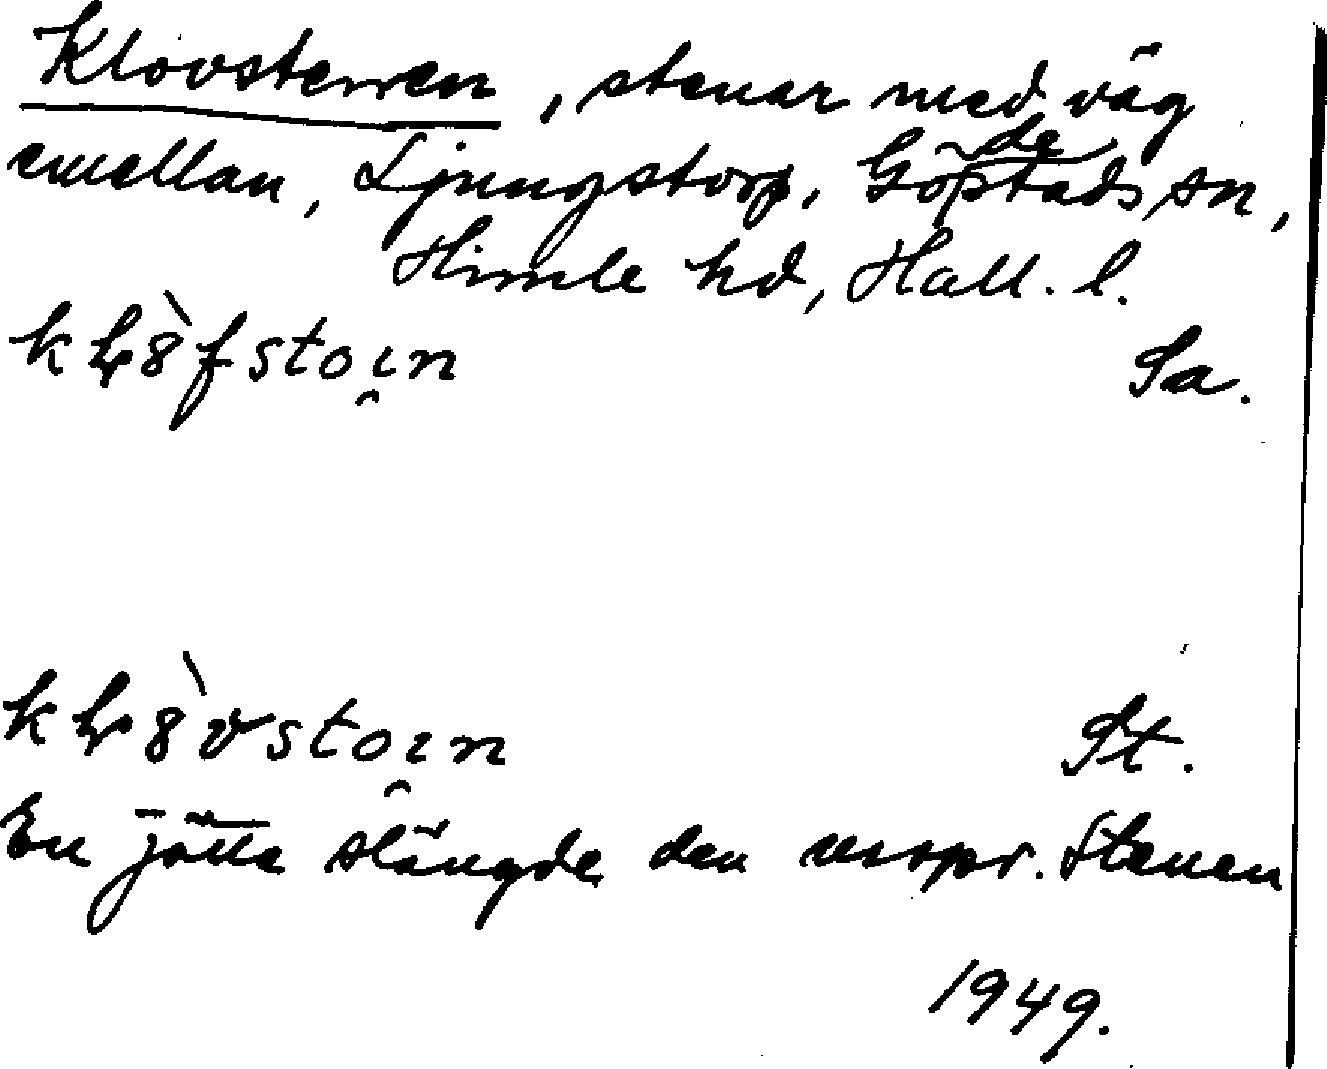 Klovstenen, stenar med väg
emellan, Ljungstorp, Gödestads sn,
Himle hd, Hall. l.
Sa.
St.
En jätte slängde den urspr. stenen
1949.